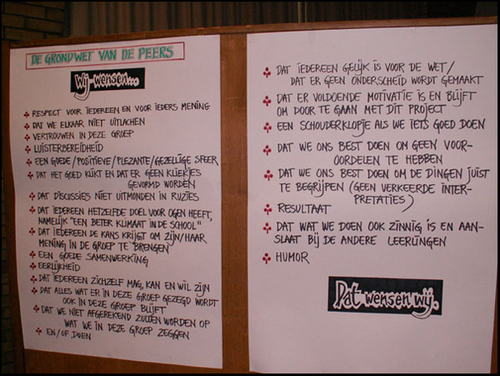 DE GRONDWET VAN DE PEERS
Wij wensen...
RESPECT VOOR IEDEREEN EN VOOR IEDERS MENING
DAT WE ELKAAR NIET UITLACHEN
VERTROUWEN IN DEZE GROEP
LUISTERBEREIDHEID
EEN GOEDE/POSITIEVE/PLEZANTE/GEZELLIGE SFEER
DAT HET GOED KLIKT EN DAT ER GEEN KLIEKJES
GEVORMD WORDEN
DAT DISCUSSIES NIET UITMONDEN IN RUZIES
DAT IEDEREEN HETZELFDE DOEL VOOR OGEN HEEFT,
NAMELIJK "EEN BETER KLIMAAT IN DE SCHOOL"
DAT IEDEREEN DE KANS KRIJGT OM ZIJN/HAAR
MENING IN DE GROEP TE "BRENGEN"
EEN GOEDE SAMENWERKING
EERLIJKHEID
DAT IEDEREEN ZICHZELF MAG, KAN EN WIL ZIJN
DAT ALLES WAT ER IN DEZE GROEP GEZEGD WORDT
OOK IN DEZE GROEP BLIJFT
DAT WE NIET AFGEREKEND ZULLEN WORDEN OP
WAT WE IN DEZE GROEP ZEGGEN
EN/OF DOEN
DAT IEDEREEN GELIJK IS VOOR DE WET/
DAT ER GEEN ONDERSCHEID WORDT GEMAAKT
DAT ER VOLDOENDE MOTIVATIE IS EN BLIJFT
OM DOOR TE GAAN MET DIT PROJECT
EEN SCHOUDERKLOPJE ALS WE IETS GOED DOEN
DAT WE ONS BEST DOEN OM GEEN VOOR-
OORDELEN TE HEBBEN
DAT WE ONS BEST DOEN OM DE DINGEN JUIST
TE BEGRIJPEN (GEEN VERKEERDE INTER-
PRETATIES)
RESULTAAT
DAT WAT WE DOEN OOK ZINNIG IS EN AAN-
SLAAT BIJ DE ANDERE LEERLINGEN
HUMOR
Dat wensen wij.